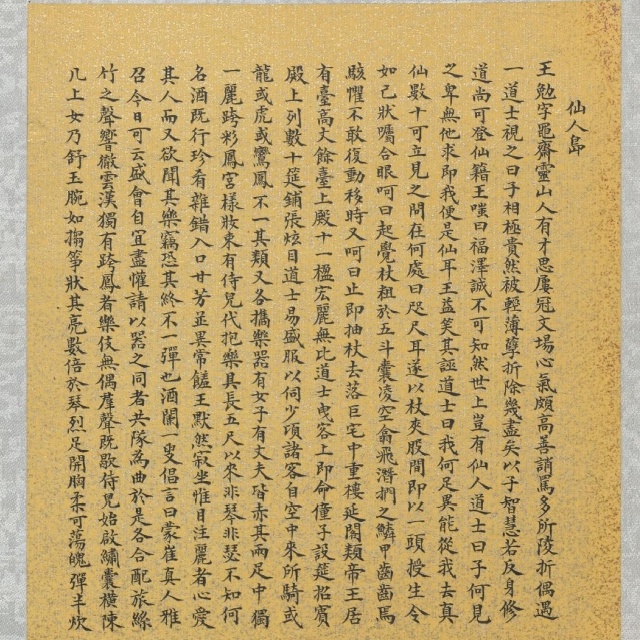 仙人島
王勉字黽齋靈山人有才思屢冠文場心氣頗高善誚罵多所陵折偶遇
一道士視之曰子相極貴然被輕薄孽折除幾盡矣以子智慧若反身修
道尚可登仙籍王嗤曰福澤誠不可知然世上豈有仙人道士曰子何見
之卑無他求即我便是仙耳王益笑其誣道士曰我何足異能從我去真
仙數十可立見之問在何處曰咫尺耳遂以杖夾股間即以一頭授生令
如己狀囑合眼呵曰起覺杖粗於五斗囊凌空翕飛潛捫之鱗甲齒齒焉
駭懼不敢復動移時又呵曰止即抽杖去落巨宅中重樓延閣類帝王居
有臺高丈餘臺上殿十一楹宏麗無比道士曳客上即命僮子設筵招賓
殿上列數十筵鋪張炫目道士易盛服以伺少項諸客自空中來所騎或
龍或虎或鸞鳳不一其類又各攜樂器有女子有丈夫皆赤其兩足中獨
一麗跨彩鳳宮樣妝束有侍兒代抱樂具長五尺以來非琴非瑟不知何
名酒既行珍肴雜錯入口甘芳並異常饈王默然寂坐惟目注麗者心愛
其人而又欲聞其樂竊恐其終不一彈也酒闌一叟倡言曰蒙崔真人雅
召今日可云盛會自宜盡懽請以器之同者共隊為曲於是各合配旅絲
竹之聲響徹雲漢獨有跨鳳者樂伎無偶羣聲既歇侍兒始啟繡囊橫陳
几上女乃舒玉腕如搊箏狀其亮數倍於琴烈足開胸柔可蕩魄彈半炊